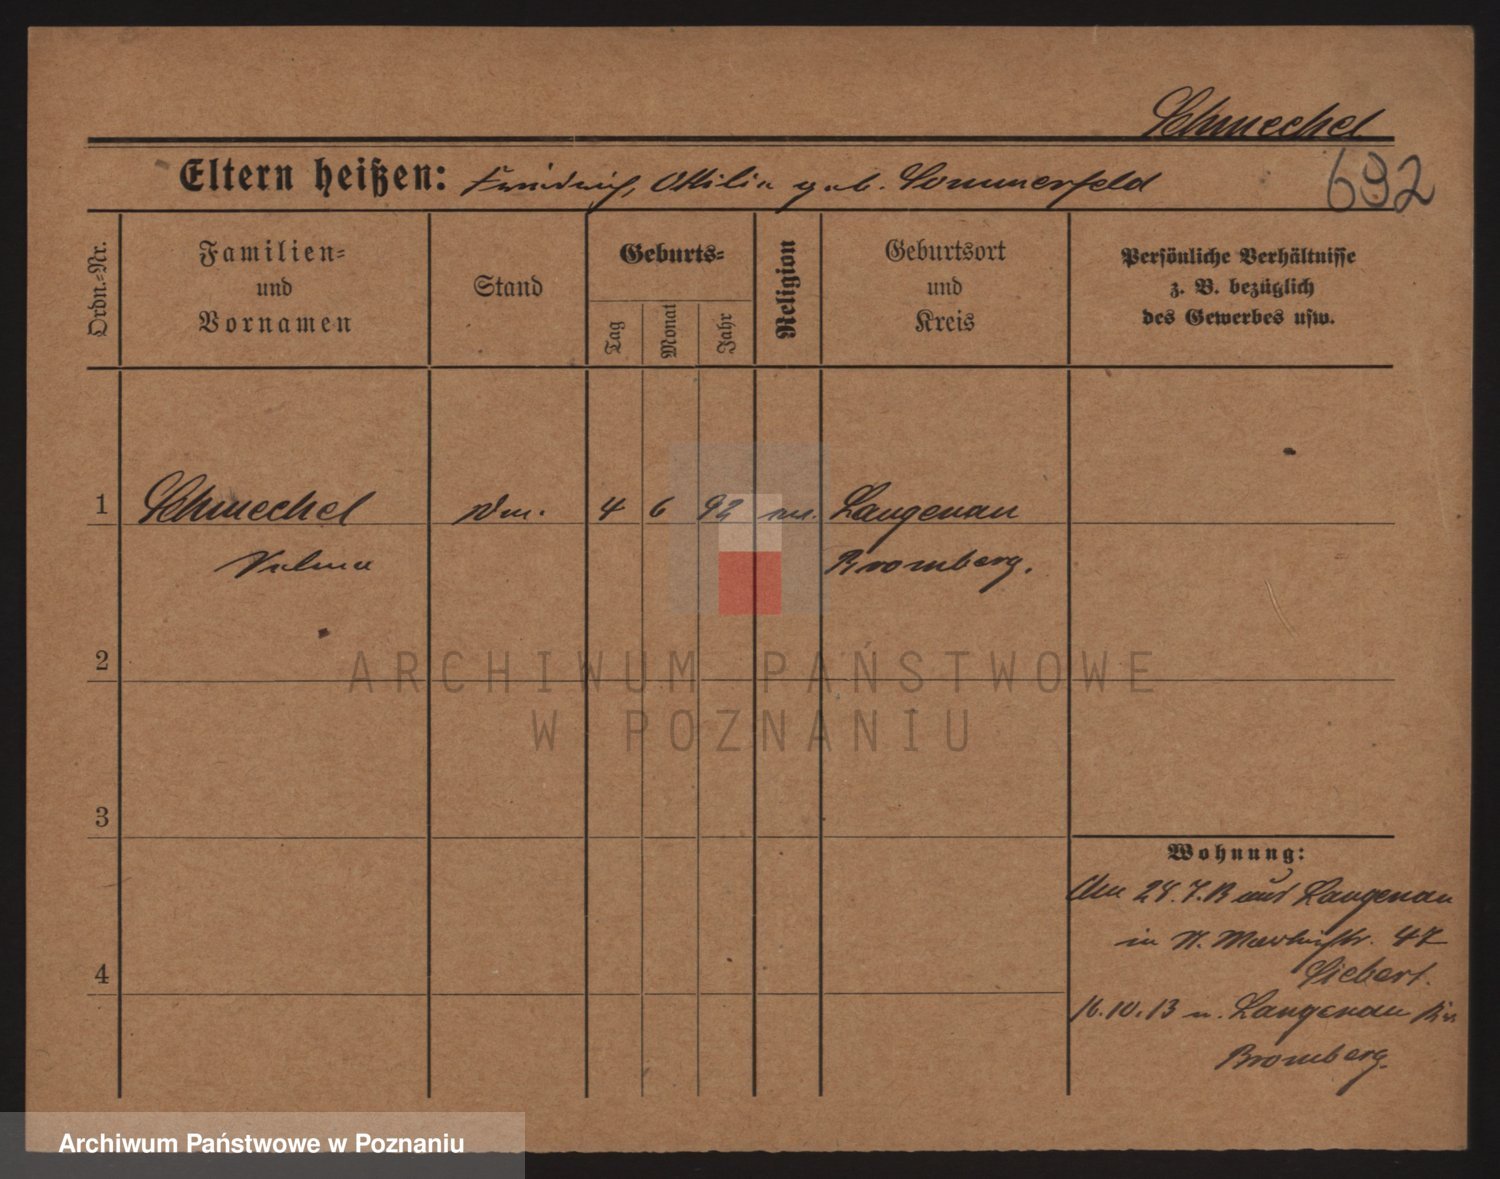 Schmechel
692
Eltern heißen: Friedrich, Ottilia geb. Sommerfeld
Ordn.-Nr.
Familien-
und
Vornamen
Stand
Geburts-
Tag
Monat
Jahr
Religion
Geburtsort
und
Kreis
Persönliche Verhältnisse
z. B. bezüglich
des Gewerbes usw.
1 Schmechel 4 6 92 Langenau
Bromberg.
2
3
4
Wohnung:
24.7.13 aus Langenau
in 47
Siebert.
16.10.13 n. Langenau
Bromberg.
ARCHIWUM PAŃSTWOWE
W POZNANIU
Archiwum Państwowe w Poznaniu